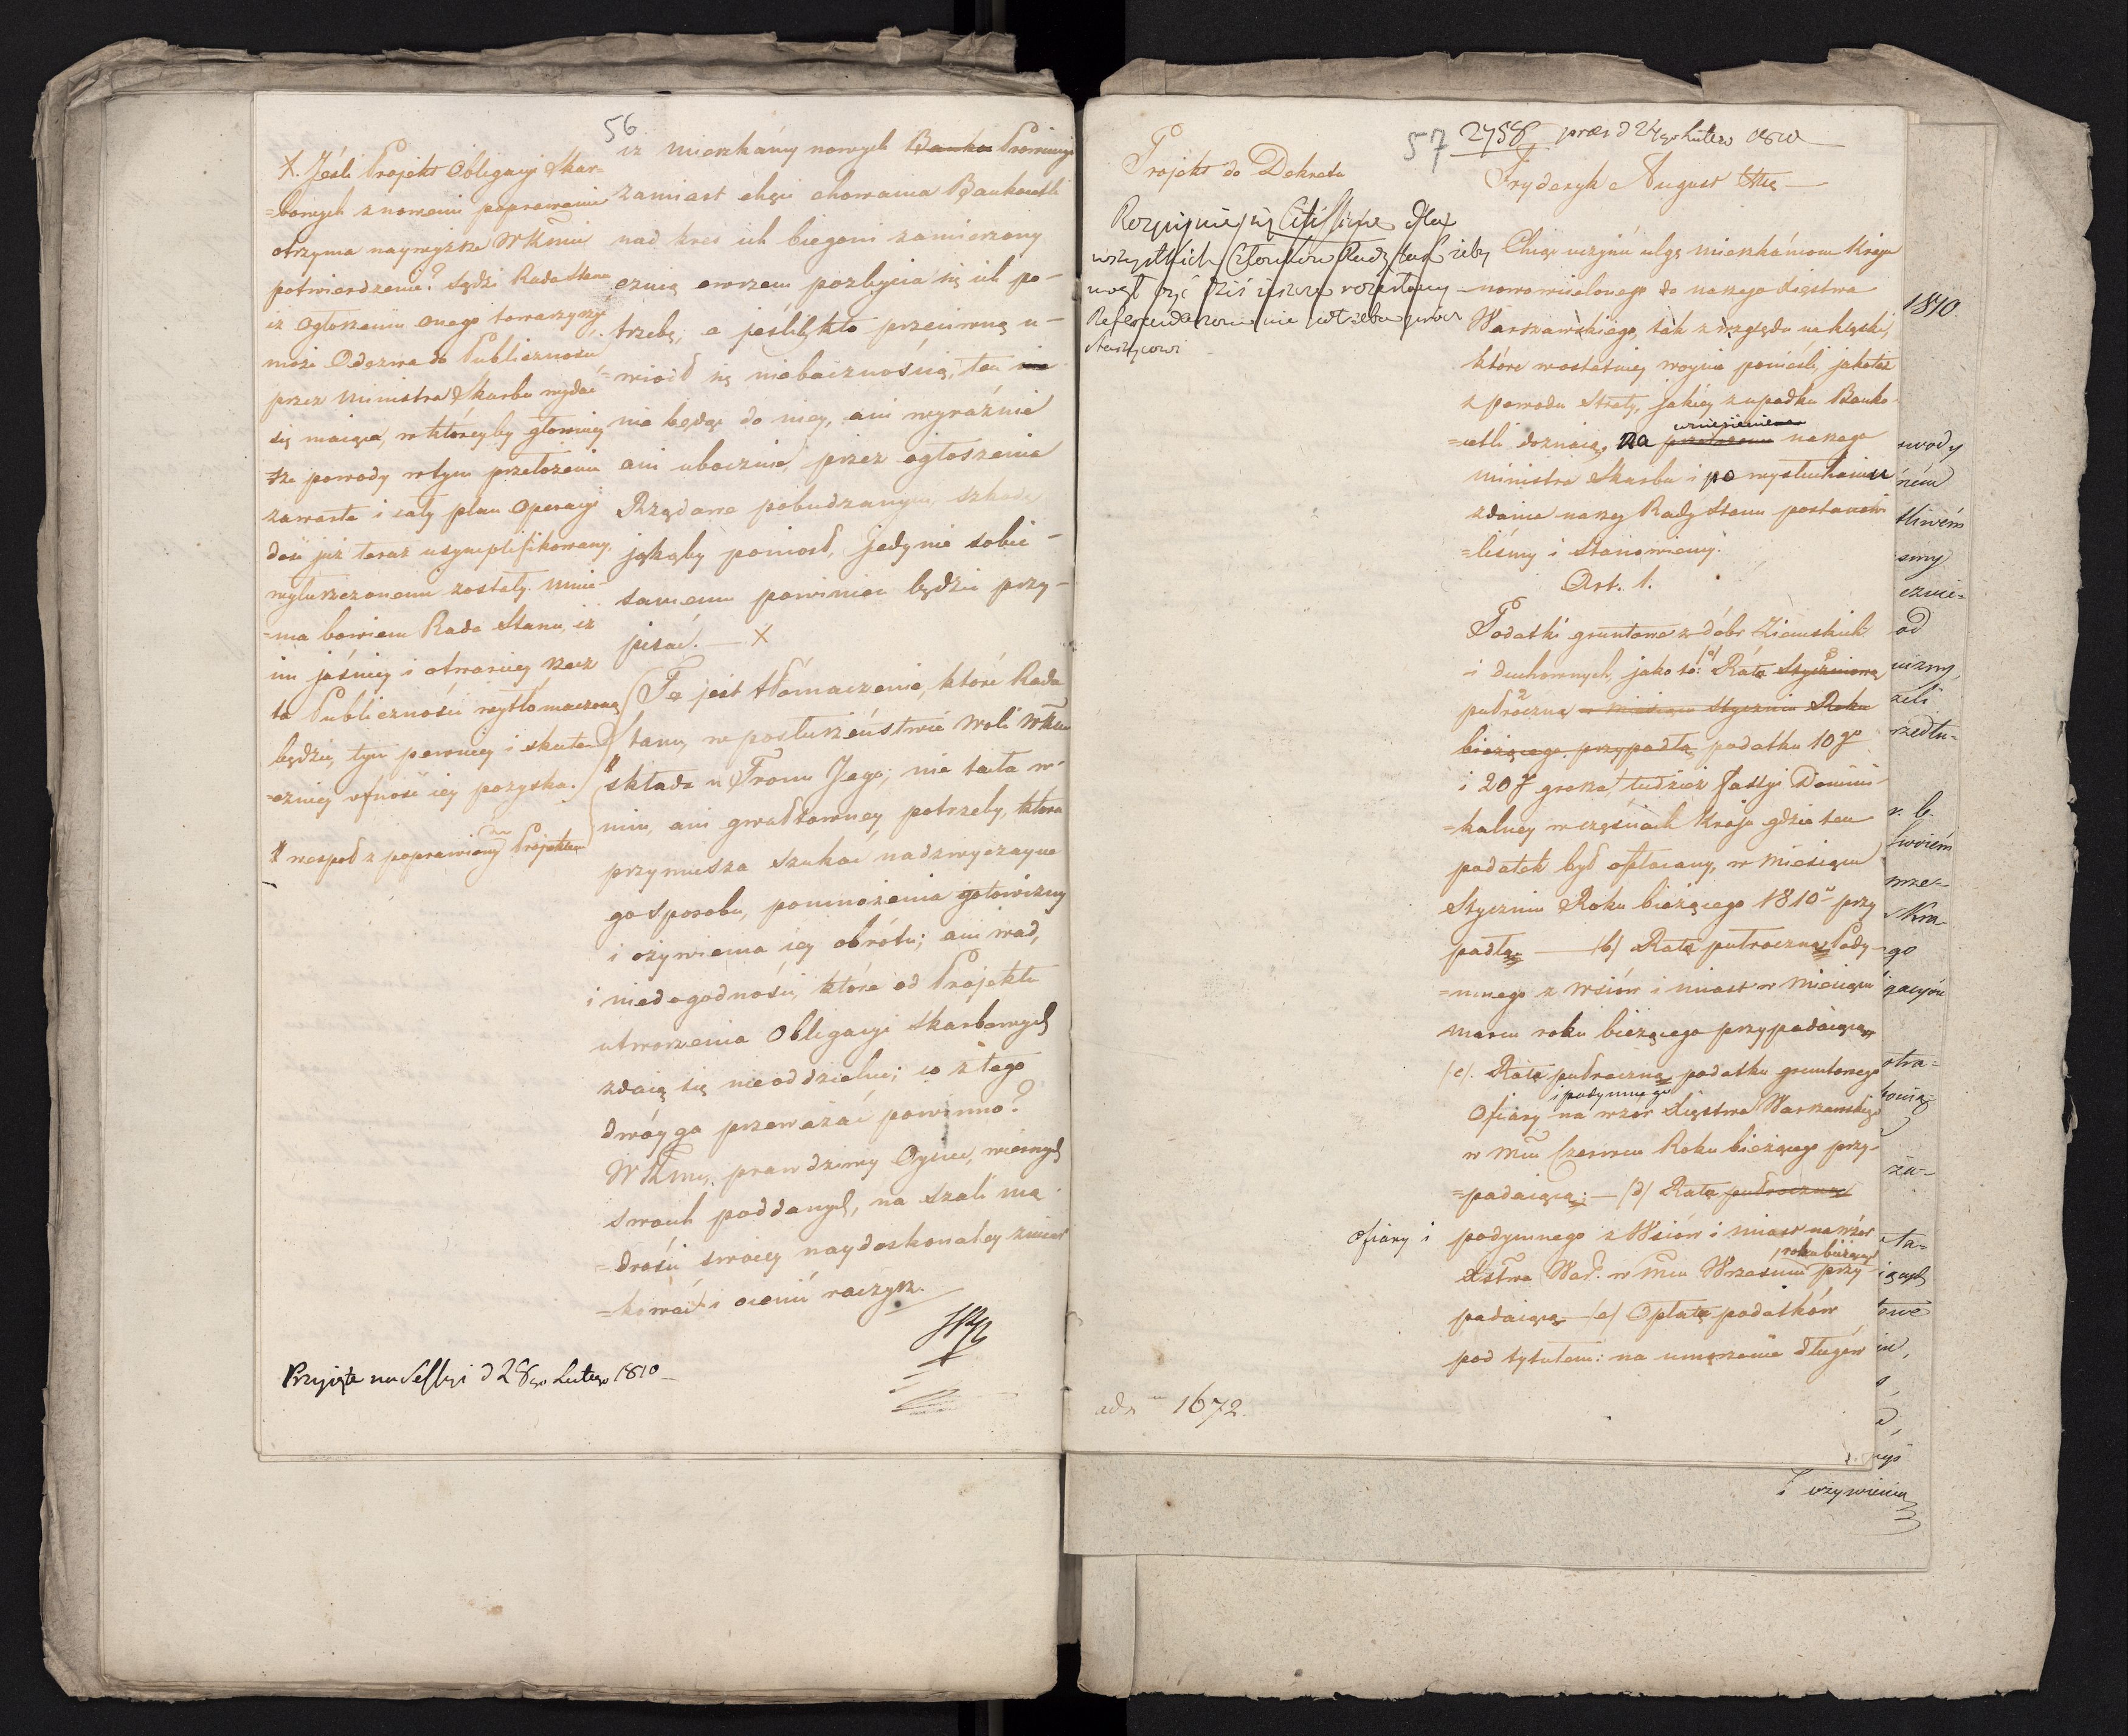 56
X. Jeśli Projekt Obligacyi Skar=
=bowych z nowemi poprawami
otrzyma naywyższe WKMci
potwierdzenie? sądzi Rada Stanu
iż ogłoszeniu onego towarzyszyć
może Odezwa do Publiczności
przez Ministra Skarbu wydać
się maiąca, w któreyby głowniey=
sze powody w tym przełożeniu
zawarte i cały plan Operacyi
dość już teraz usymplifikowany,
wyłuszczonemi zostały. Mnie=
=ma bowiem Rada Stanu, iż
im jaśniey i otwarciey rzecz
ta Publiczności wytłómaczoną
będzie, tym pewniey i skutecz
=czniey ufność iey pozyska.
# wespoł z poprawionym Projektem
iż mieszkańcy nowych Banko Prowincyi
zamiast chęci chowania Bankocetli
nad kres ich biegowi zamierzony
czuią owszem pozbycia się ich po-
trzebę, a jeśliby kto przeciwną u-
=wiodł się niebacznością, ten
nie będąc do niey, ani wyraźnie
ani ubocznie, przez ogłoszenia
Rządowe pobudzanym, szkodę
jakąby poniosł, jedynie sobie -
samemu powinien będzie przy-
pisać. — X
Te jest tłómaczenie, które Rada
Stanu, w posłuszeństwie woli WKMci
# składa u Tronu Jego; nie taiła w
nim, ani gwałtowney potrzeby, która
przymusza szukać nadzwyczayne
go sposobu, pomnożenia gotowizny
i ożywienia iey obrótu; ani wad,
i niedogodności, które od Projektu
utworzenia Obligacyi Skarbowych
zdaią się nieoddzielne; co z tego
dwóyga przeważać powinno?
WKMć, prawdziwy Oyciec, wiernych
swoich poddanych, na szali mą
=drości swoiey naydoskonaley zmiar
=kować i ocenić raczysz.
Przyięte na Sessyi d 28go Lutego 1810 —
57
2758 præs d 24go Lutego 1810
Projekt do Dekretu
Fryderyk August &c
Rozpisuie się Citissime dla
wszystkich Członków Rady tak żeby
mogł być dziś ieszcze rozesłany —
Referendarzowi nie potrzeba procz
Staszycowi
Chcąc uczynić ulgę mieszkańcom Kraju
nowowcielonego do naszego Xięstwa
Warszawskiego, tak z względu na klęski,
które w ostatniey woynie ponieśli, jakoteż
z powodu Straty, jakiey z upadku Banko-
=cetli doznaią, na przełożenie naszego
wniesienie
Ministra Skarbu i po wysłuchaniu
zdania naszey Rady Stanu postanowi
=liśmy i Stanowiemy.
Art. 1.
Podatki gruntowe z dóbr Ziemskich
i duchownych, jako to: (a) Ratę Styczniową
pułroczną w miesiącu Styczniu Roku
bieżącego przypadłą, podatku 10go
i 20go grosza, tudzież Fassyi Domini-
=kalney w częściach Kraju gdzie ten
podatek był opłacany, w Miesiącu
Styczniu Roku bieżącego 1810 przy
padłą — (b) Ratę pułroczną Pody-
=mnego z Wsiów i miast w Miesiącu
Marcu roku bieżącego przypadaiącą
(c). Ratę pułroczną podatku gruntowego
i podymnego
Ofiary na wzór Xięstwa Warszawskiego
w Mcu Czerwcu Roku bieżącego przy-
=padaiącą; — (d) Ratę pułroczną
ofiary i podymnego z Wsiów i miast na wzór
roku bieżącego
Xstwa War. w Mcu Wrześniu przy
padaiącą — (e) Opłatę podatków
pod tytułem: na umorzenie długów
ad N 1672.
1810.
i ożywienia